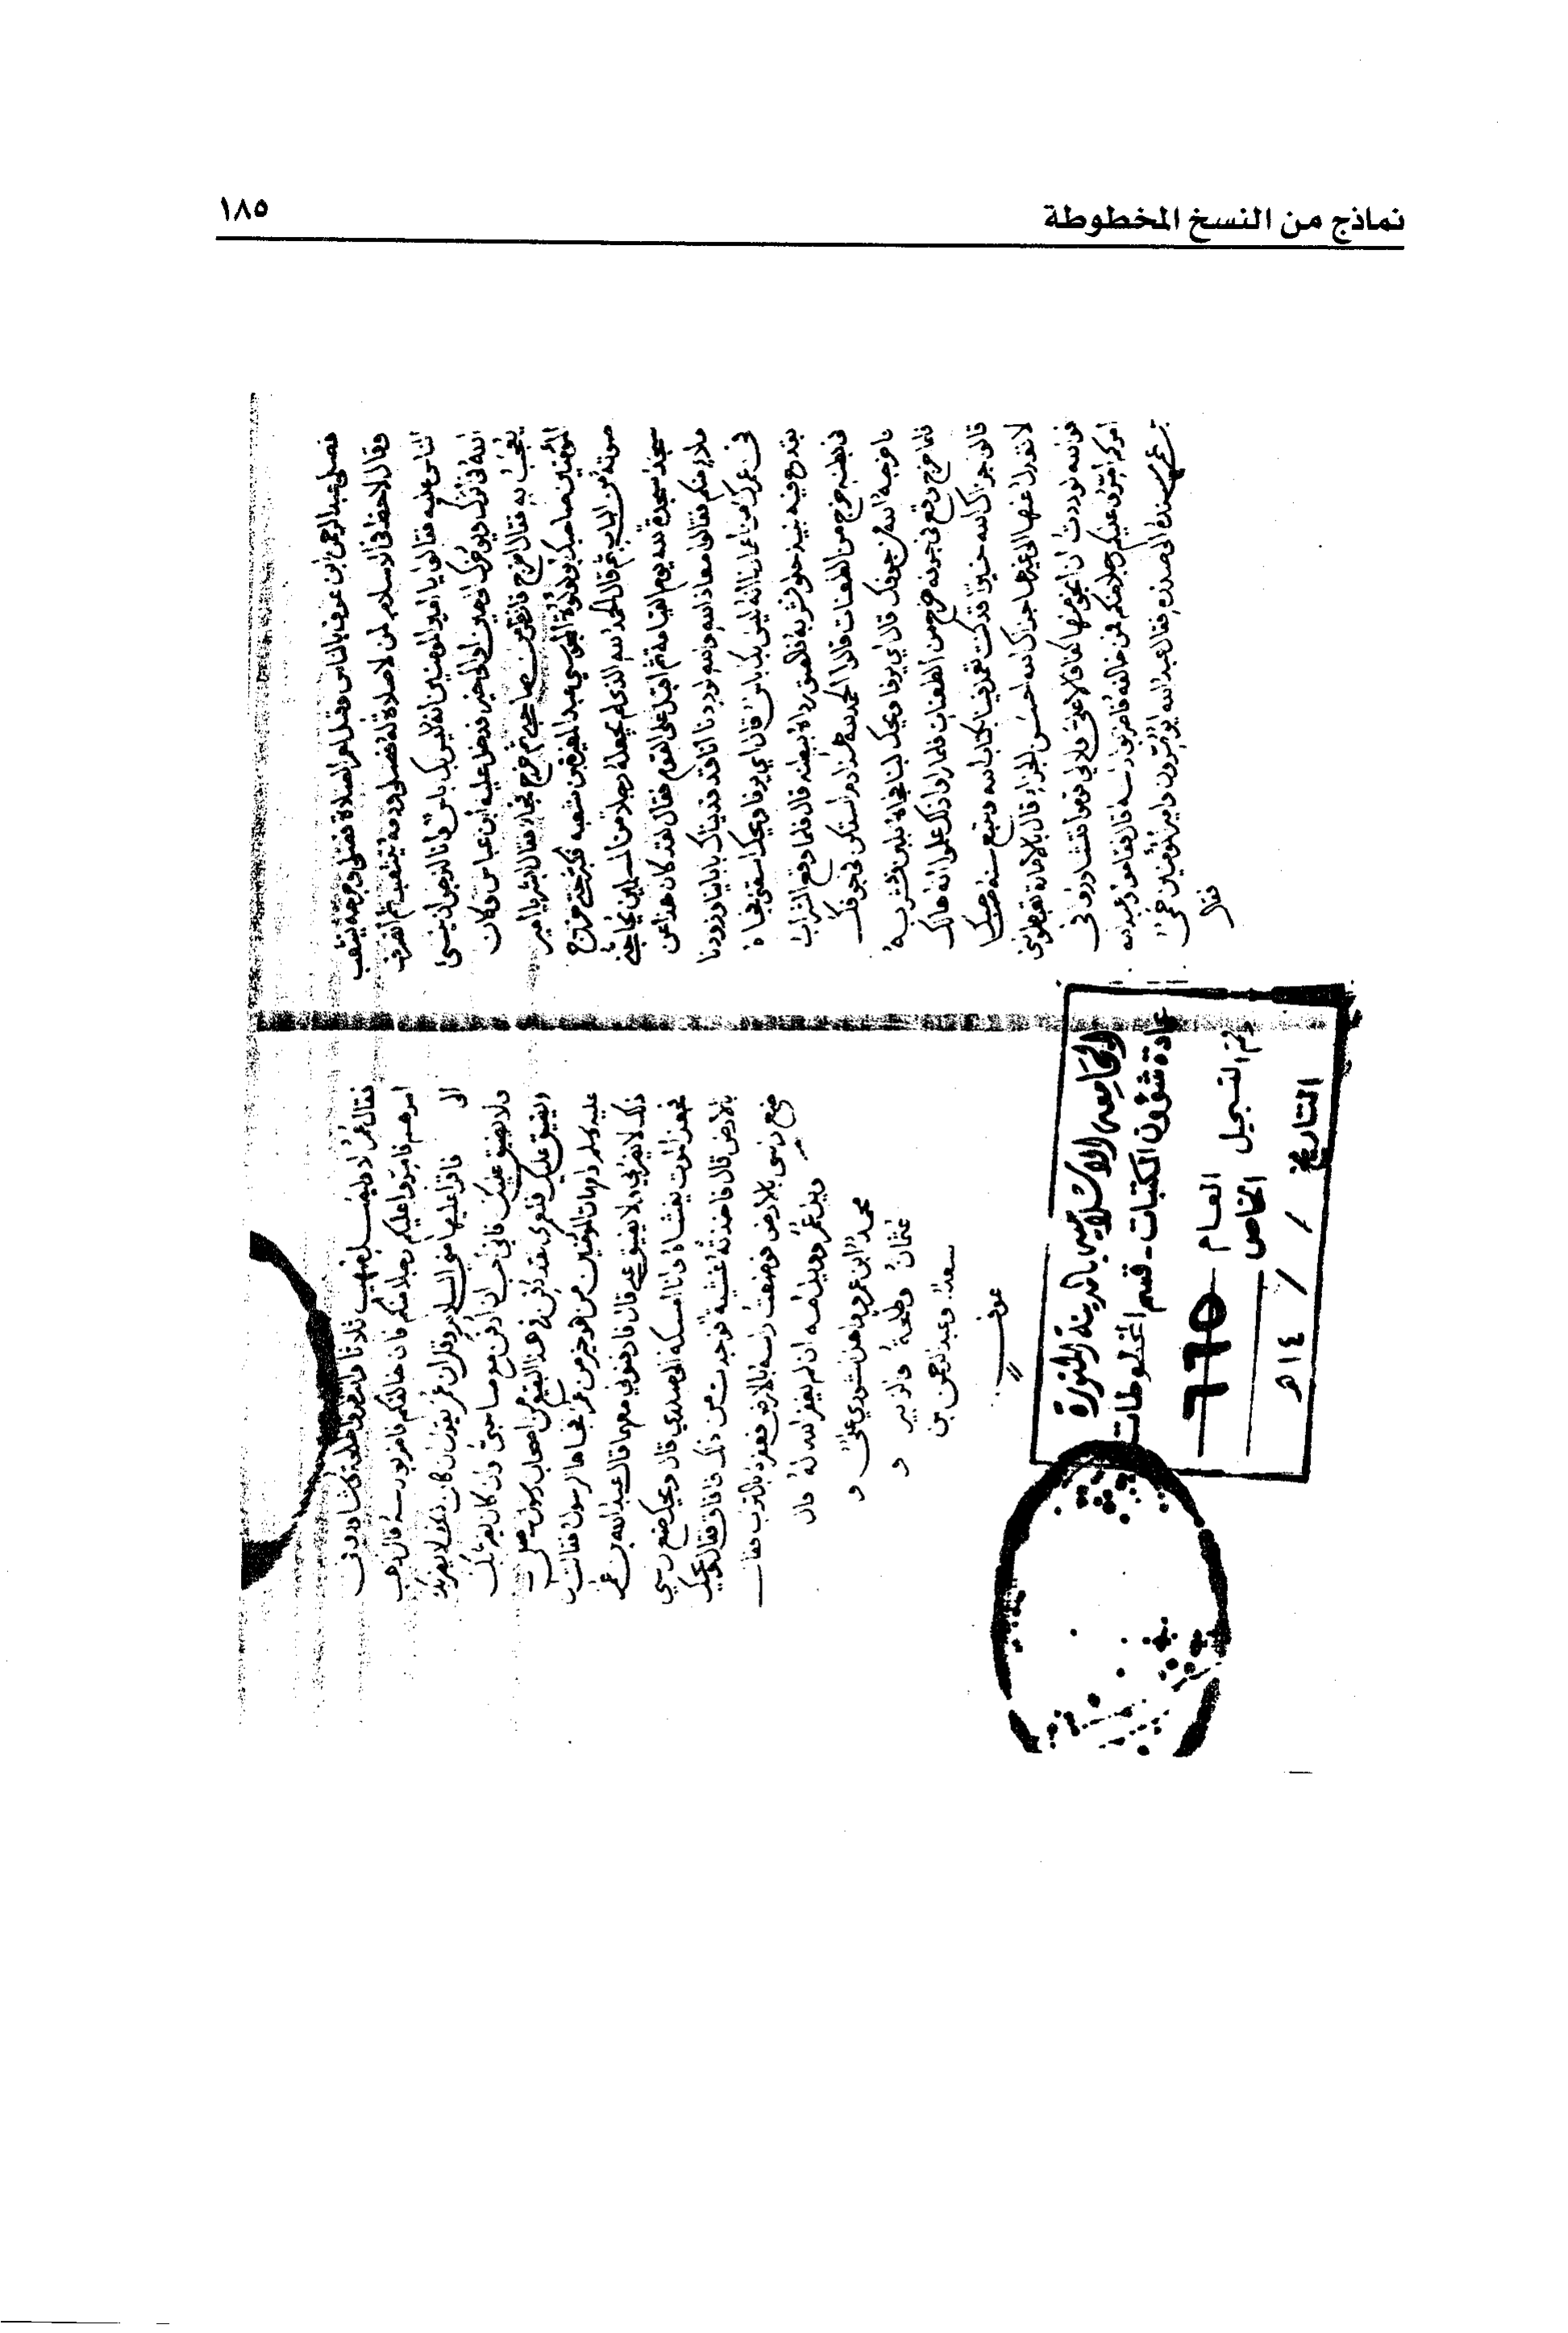 نماذج من النسخ المخطوطة
١٨٥
فصلى عبد الرحمن ابن عوف بالناس وقيل لعمر الصلاة فصلى وجرحه يثعب
وقال لاحظ في الاسلام لمن لا صلاة له فصلى ودمه يثعب ثم انصرف
الناس عليه فقالوا يا امير المومنين انه ليس بك باس وانا لنرجوا ان ينسئ
الله في اثرك ويوخرك الى حين او الى خير فدخل عليه ابن عباس وكان
يعجب به فقال اخرج فانظر من صاحبي ثم خرج فجاء فقال ابشر يا امير
المؤمنين صاحبك ابو لولوة المجوسي عبد المغيرة بن شعبه فكبر حتى خرج
صوته من الباب ثم قال الحمد لله الذي لم يجعله رجلا من المسلمين يحاجني
سجد سجدة لله يوم القيامة ثم اقبل على القوم فقال اهذا كان هذا عن
ملاء منكم فقالوا معاذ الله والله لوددنا انا فديناك بابائنا وزدنا
في عمرك من اعمارنا انه ليس بك باس قال اي يرفا ويحك اسقني فجاه
بقدح فيه نبيذ حلو فشربه فالصق رداه ببطنه قال فلما وقع الشراب
في بطنه خرج من الطعنات قالوا الحمد لله هذا دم استكن في جوفك
فاخرجه الله من جوفك قال اي يرفا ويحك اسقني لبنا فجاه بلبن فشربه
فلما خرج وقع في جوفه خرج من الطعنات فلما راوا ذلك علموا انه هالك
قالوا جزاك الله خيرا قد كنت تعمل فينا بكتاب الله وتتبع سنة صاحبيك
لا تعدل عنها الى غيرها جزاك الله احسن الجزاء قال بالامارة تغبطونني
فوالله لوددت اني انجو منها كفافا لا علي ولا لي قوموا فتشاوروا في
امركم امروا عليكم رجلا منكم فمن خالفه فاضربوا راسه قال فقاموا وعبد الله
بن عمر مسنده الى صدره فقال عبد الله ايؤمرون وامير المؤمنين حي
فقال
فقال عمر لا وليصل صهيب ثلاثا وانتظروا طلحة وتشاوروا في
امركم فامروا عليكم رجلا منكم فان خالفكم فاضربوا راسه قال اذهب
الى فاقرا عليها مني السلام وقل ان عمر يقول ان كان ذلك لا يضربك
ولا يضيق عليك فاني احب ان ادفن مع صاحبي وان كان يضربك
ويضيق عليك فلعمري لقد دفن في هذا البقيع من اصحاب رسول الله صلى
عليه وسلم وامهات المؤمنين من هو خير من عمر فجاها الرسول فقالت
ذلك لا يضرني ولا يضيق علي قال فادفنوني معهما قال عبد الله بن عمر
فجعل الموت يغشاه وانا امسكه الى صدري قال ويحك ضع راسي
بالارض قال فاخذته غشية فوجدت من ذلك فافاق فقال ويحك
ضع راسي بالارض فوضعت راسه بالارض فعفره بالتراب فقال
ويل عمر وويل امه ان لم يغفر الله له قال
محمد ابن عمرو واهل الشورى علي و
عثمان وطلحة والزبير و
سعد وعبد الرحمن بن
عوف
الجامعه الاسلاميه بالمدينة المنورة
عمادة شؤون المكتبات - قسم المخطوطات
رقم التسجيل العام ٦٦٥
الخاص
التاريخ / / ١٤هـ